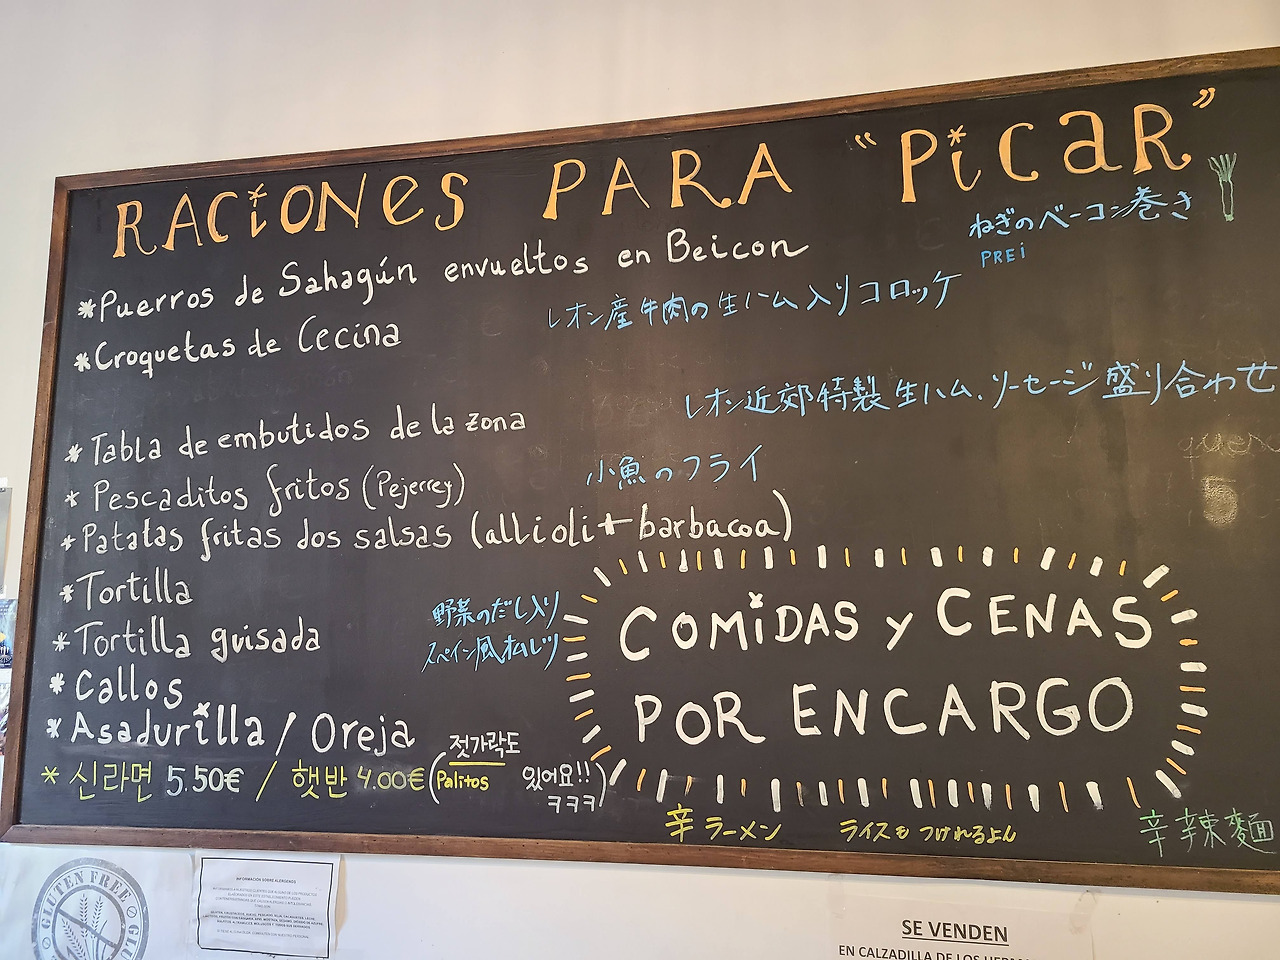 RACiONES PARA "PiCAR"
*Puerros de Sahagún envueltos en Beicon
ねぎのベーコン巻き
PREi
*Croquetas de Cecina
レオン産牛肉の生ハム入りコロッケ
*Tabla de embutidos de la zona
レオン近郊特製生ハム、ソーセージ盛り合わせ
* Pescaditos fritos (Pejerrey)
小魚のフライ
* Patatas fritas dos salsas (allioli + barbacoa)
* Tortilla
* Tortilla guisada
野菜のだし入り
スペイン風オムレツ
* Callos
* Asadurilla / Oreja
* 신라면 5.50€ / 햇반 4.00€ (젓가락도
Palitos 있어요!! ㅋㅋㅋ)
COMiDAS y CENAS
POR ENCARGO
辛ラーメン ライスもつけれるよん 辛辣麵
GLUTEN FREE
INFORMACIÓN SOBRE ALÉRGENOS
SE VENDEN
EN CALZADILLA DE LOS